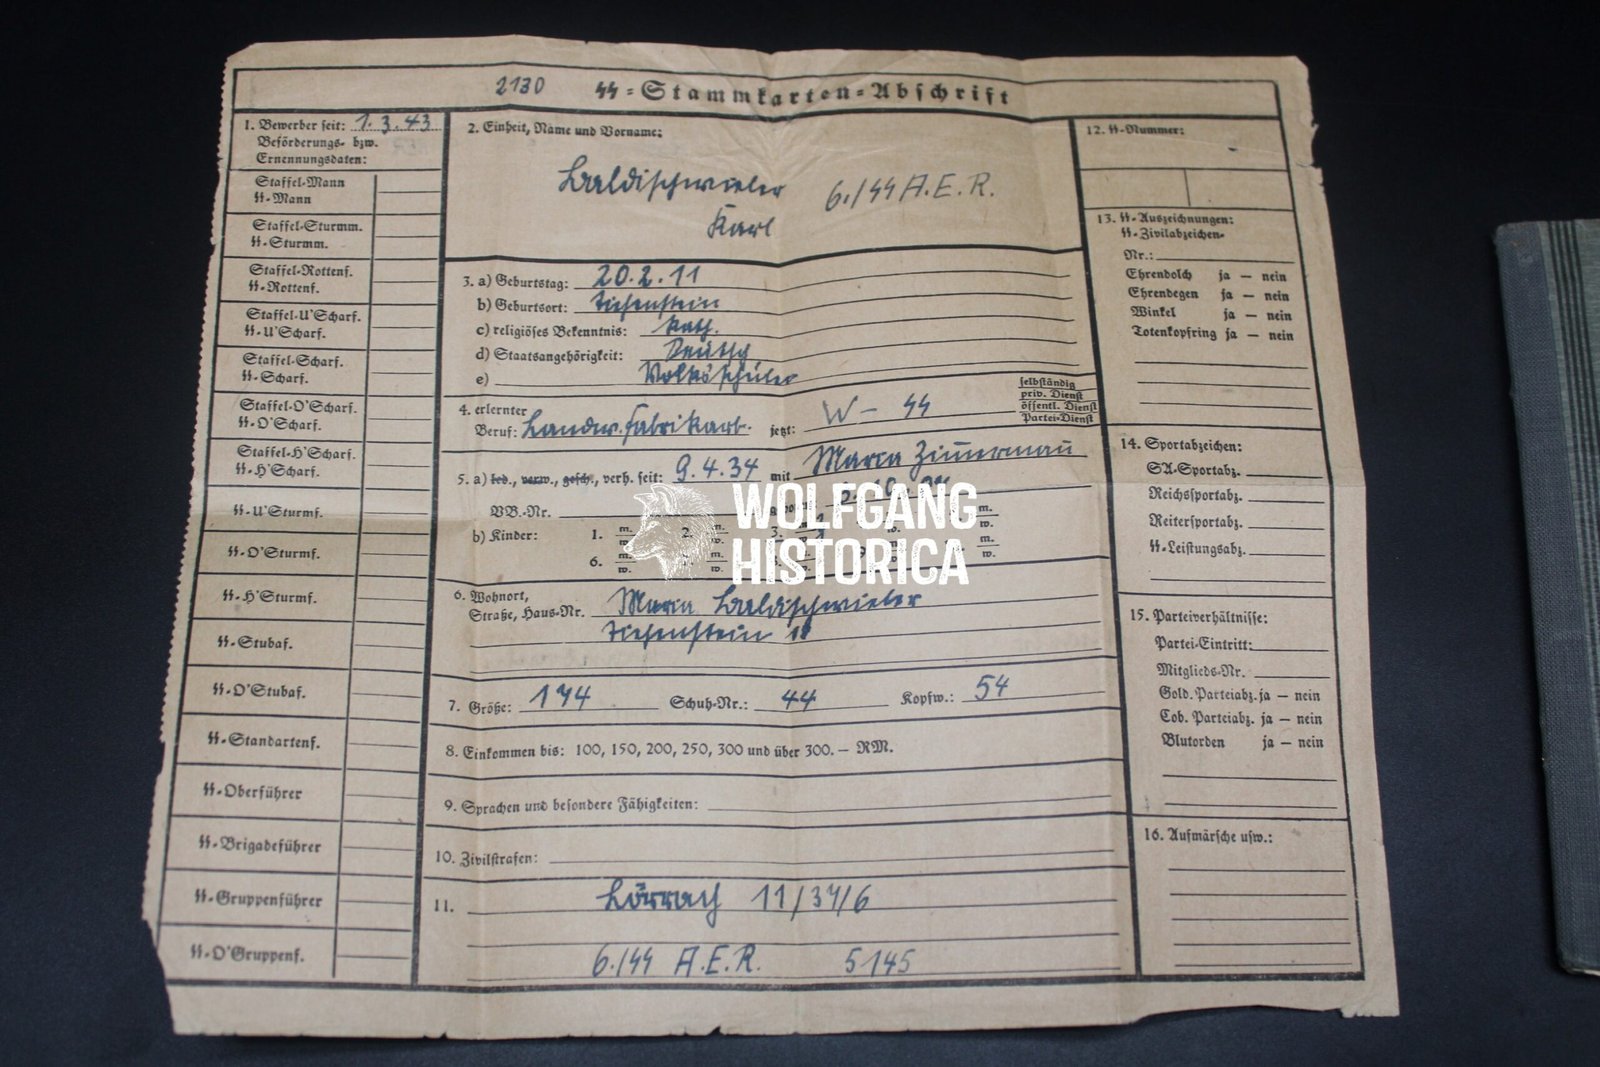 2130 SS=Stammkarten=Abschrift
1. Bewerber seit: 1.3.43
Beförderungs- bzw.
Ernennungsdaten:
Staffel-Mann
SS-Mann
Staffel-Sturmm.
SS-Sturmm.
Staffel-Rottenf.
SS-Rottenf.
Staffel-U'Scharf.
SS-U'Scharf.
Staffel-Scharf.
SS-Scharf.
Staffel-O'Scharf.
SS-O'Scharf.
Staffel-H'Scharf.
SS-H'Scharf.
SS-U'Sturmf.
SS-O'Sturmf.
SS-H'Sturmf.
SS-Stubaf.
SS-O'Stubaf.
SS-Standartenf.
SS-Oberführer
SS-Brigadeführer
SS-Gruppenführer
SS-O'Gruppenf.
2. Einheit, Name und Vorname:
Baldischwieler 6./SS A.E.R.
Karl
3. a) Geburtstag: 20.2.11
b) Geburtsort: Tiefenstein
c) religiöses Bekenntnis: kath.
d) Staatsangehörigkeit: Deutsch
e) Volksschüler
4. erlernter
Beruf: Landw. Fabrikarb. jetzt: W-SS
selbständig
priv. Dienst
öffentl. Dienst
Partei-Dienst
5. a) led., verw., gesch., verh. seit: 9.4.34 mit Maria Zimmermann
VB.-Nr.
b) Kinder: 1. m. w. 2. m. w. 3. m. w.
6. m. w.
WOLFGANG
HISTORICA
6. Wohnort,
Straße, Haus-Nr. Maria Baldischwieler
Tiefenstein
7. Größe: 174 Schuh-Nr.: 44 Kopfw.: 54
8. Einkommen bis: 100, 150, 200, 250, 300 und über 300.— RM.
9. Sprachen und besondere Fähigkeiten:
10. Zivilstrafen:
11. Lörrach 11/37/6
6./SS A.E.R. 5145
12. SS-Nummer:
13. SS-Auszeichnungen:
SS-Zivilabzeichen-
Nr.:
Ehrendolch ja — nein
Ehrendegen ja — nein
Winkel ja — nein
Totenkopfring ja — nein
14. Sportabzeichen:
SA-Sportabz.
Reichssportabz.
Reitersportabz.
SS-Leistungsabz.
15. Parteiverhältnisse:
Partei-Eintritt:
Mitglieds-Nr.
Gold. Parteiabz. ja — nein
Cob. Parteiabz. ja — nein
Blutorden ja — nein
16. Aufmärsche usw.: